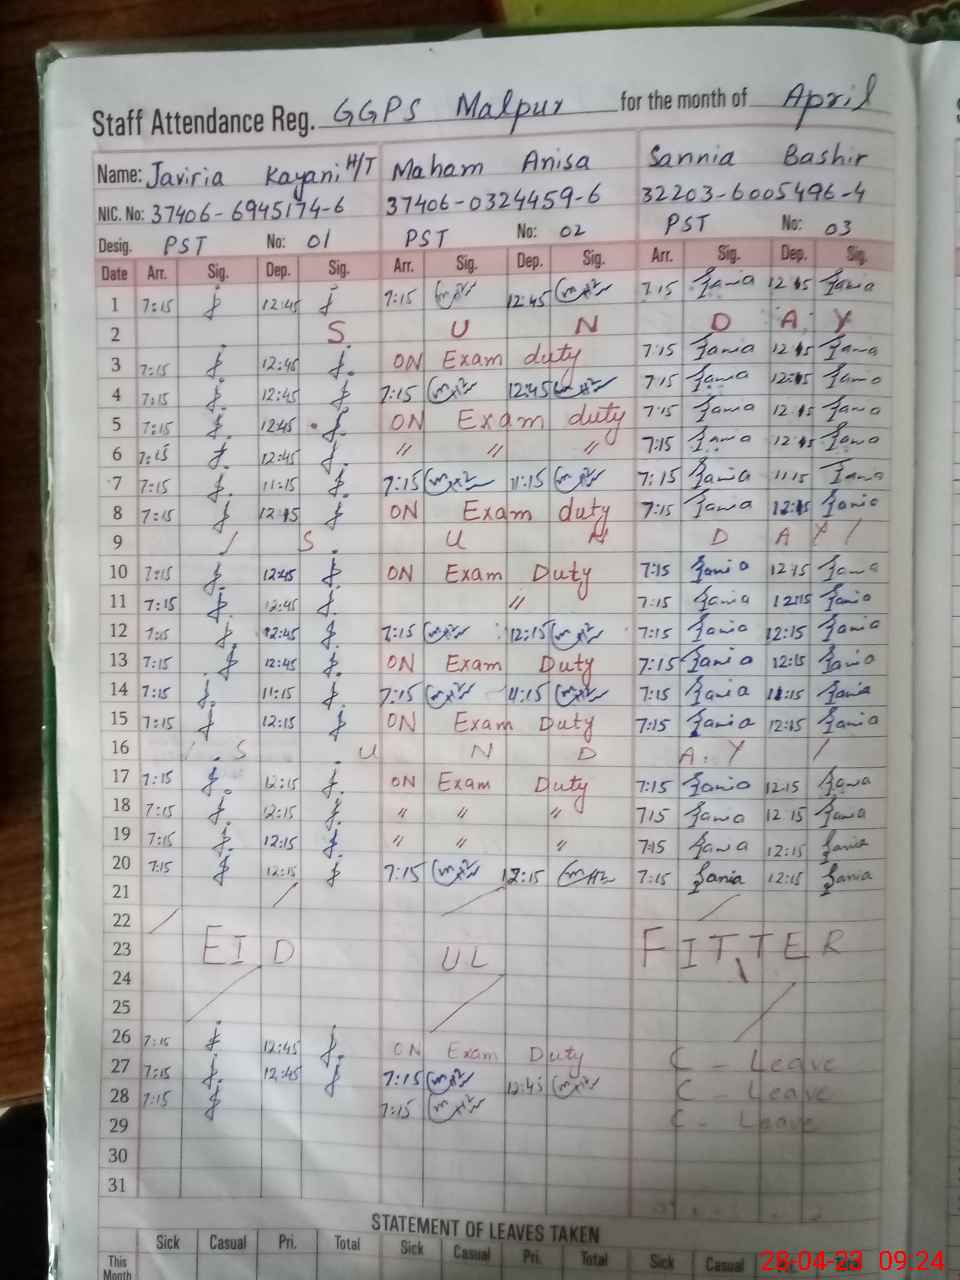 Staff Attendance Reg. GGPS Malpur for the month of April
Name: Javiria Kayani H/T Maham Anisa Sannia Bashir
NIC. No: 37406-6945174-6 37406-0324459-6 32203-6005496-4
Desig. PST No: 01 PST No: 02 PST No: 03
Date Arr. Sig. Dep. Sig. Arr. Sig. Dep. Sig. Arr. Sig. Dep. Sig.
1 7:15 12:45 7:15 12:45 7:15 12:45
2 S U N D A Y
3 7:15 12:45 ON Exam duty 7:15 12:15
4 7:15 12:45 7:15 12:45 7:15 12:15
5 7:15 12:45 ON Exam duty 7:15 12:15
6 7:15 12:45 " " " 7:15 12:15
7 7:15 11:15 7:15 11:15 7:15 11:15
8 7:15 12:15 ON Exam duty 7:15 12:15
9 / S U N D A Y /
10 7:15 12:45 ON Exam Duty 7:15 12:15
11 7:15 12:45 " 7:15 12:15
12 7:15 12:45 7:15 12:15 7:15 12:15
13 7:15 12:45 ON Exam Duty 7:15 12:15
14 7:15 11:15 7:15 11:15 7:15 11:15
15 7:15 12:15 ON Exam Duty 7:15 12:15
16 / S U N D A Y /
17 7:15 12:15 ON Exam Duty 7:15 12:15
18 7:15 12:15 " " " 7:15 12:15
19 7:15 12:15 " " " 7:15 12:15
20 7:15 12:15 7:15 12:15 7:15 Sania 12:15 Sania
21
22
23 EID UL FITTER
24
25
26 7:15 12:45 ON Exam Duty C - Leave
27 7:15 12:45 7:15 12:45 C - Leave
28 7:15 7:15 C - Leave
29
30
31
STATEMENT OF LEAVES TAKEN
Sick Casual Pri. Total Sick Casual Pri. Total Sick Casual Total
This
Month
28-04-23 09:24